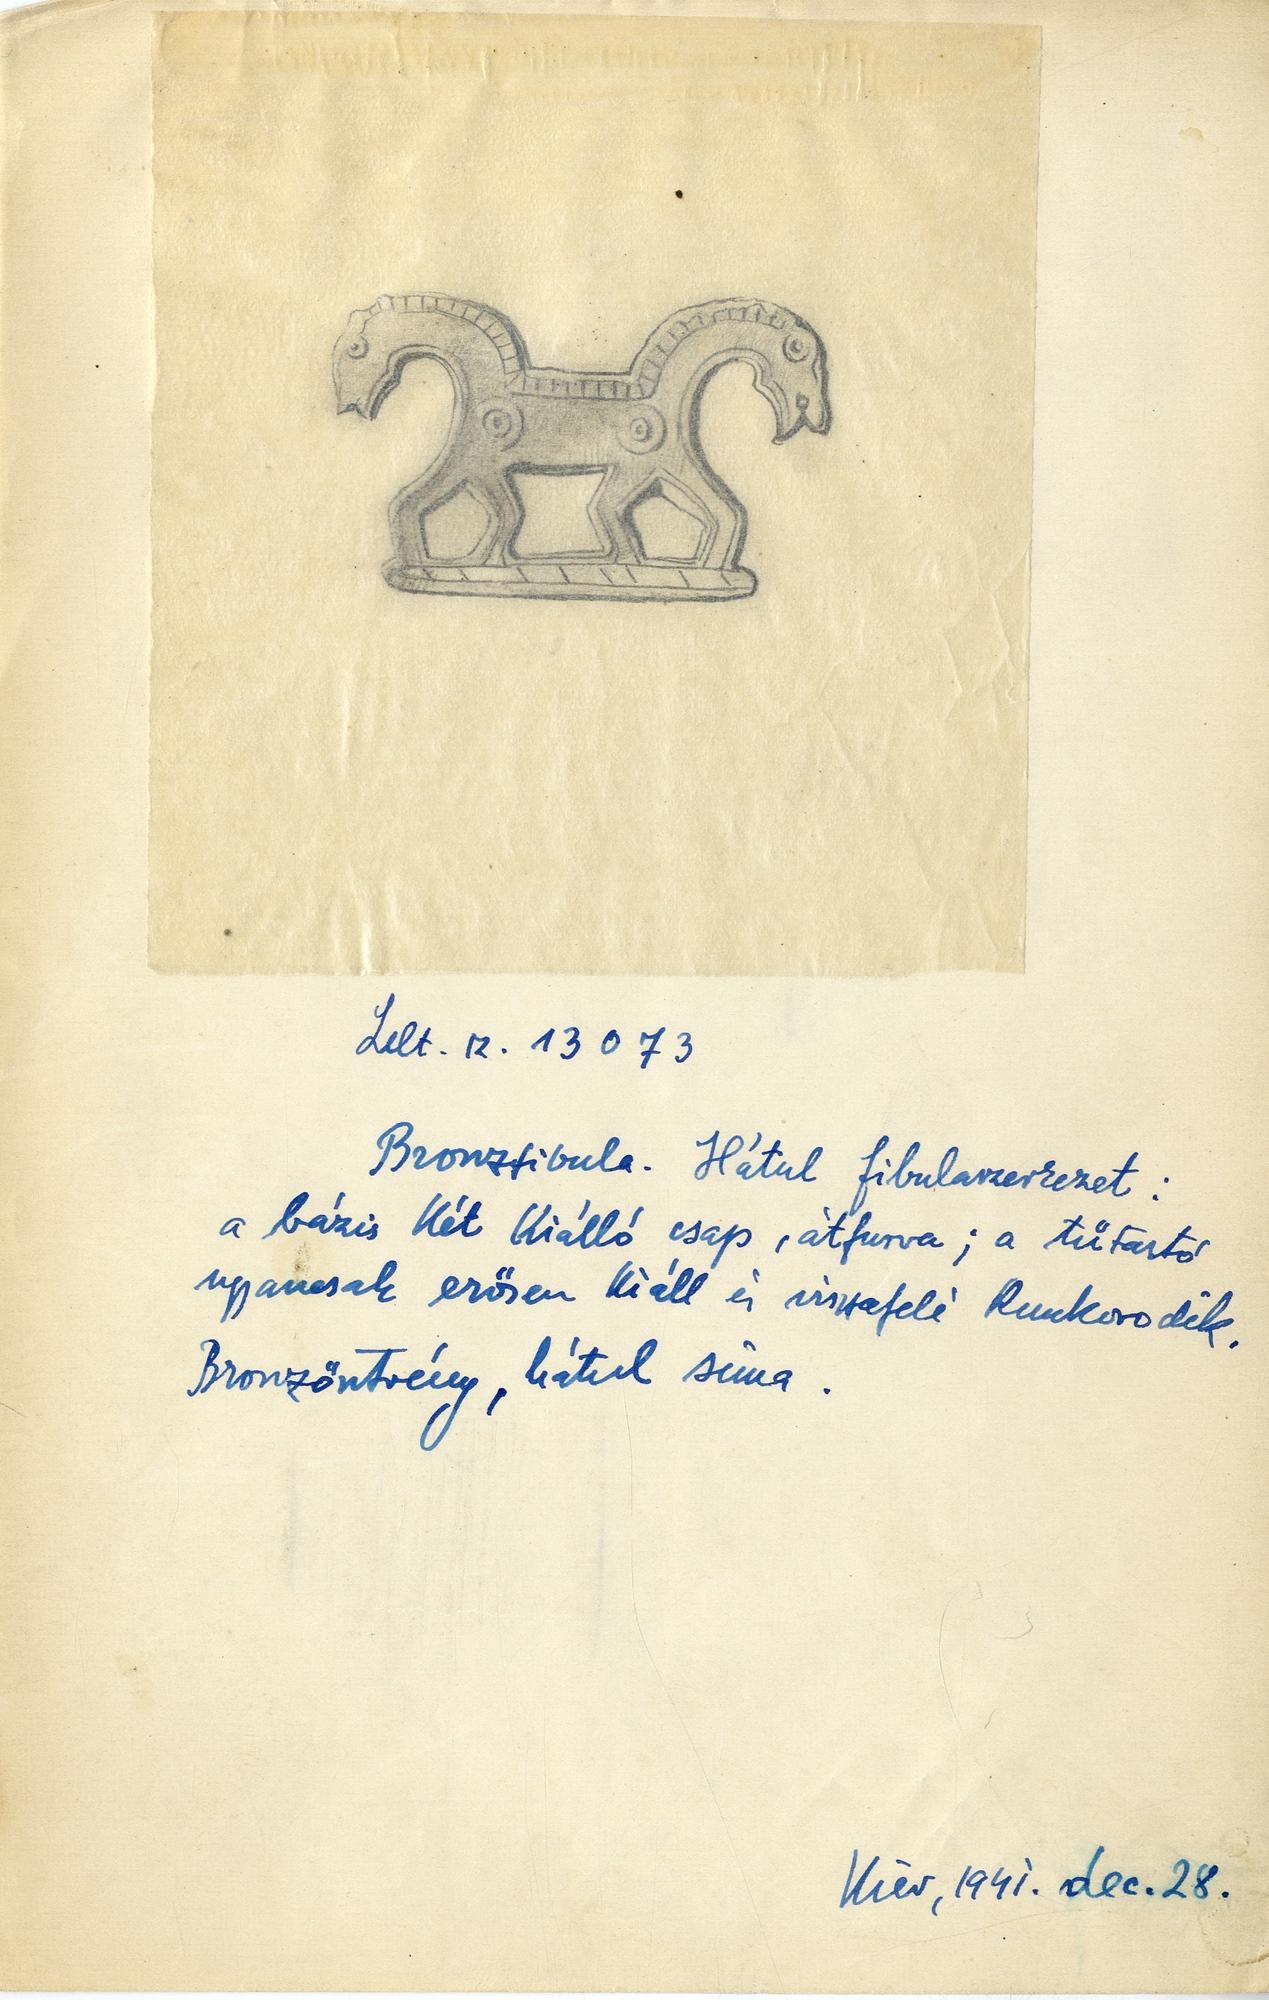 Lelt. sz. 13073
Bronzfibula. Hátul fibulaszerkezet:
a bázis két kiálló csap, átfurva; a tűtartó
ugyancsak erősen kiáll és visszafelé kunkorodik.
Bronzöntvény, hátul sima.
Kiev, 1941. dec. 28.